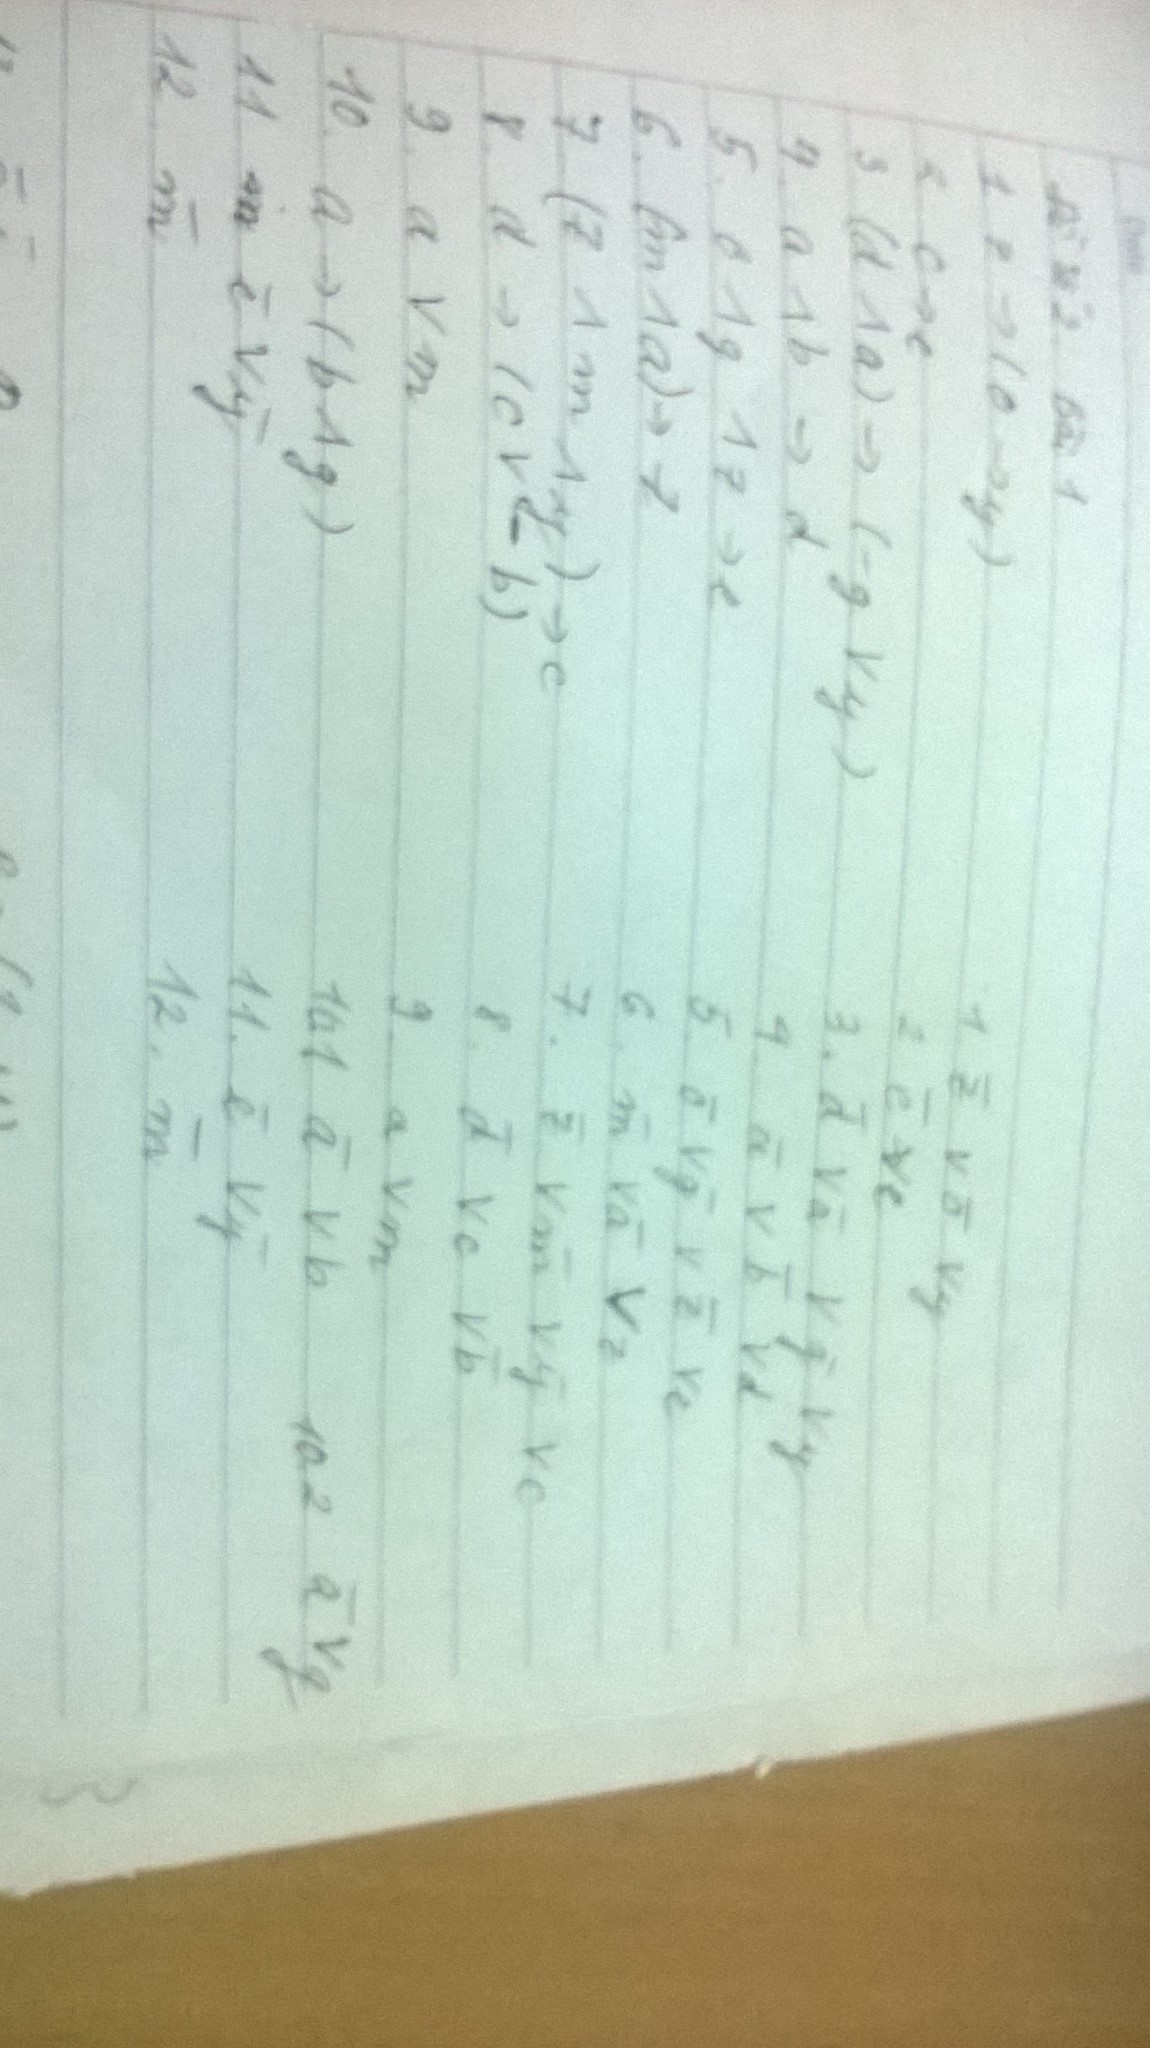 Date
Đề số 2. Bài 1
1 z → (o → y)
2 c → e
3 (d ∧ a) → (-g ∨ y)
4. a ∧ b → d
5. o ∧ g ∧ z → e
6. (m ∧ a) → z
7 (z ∧ m ∧ y) → c
8. d → (c ∨ - b)
9. a ∨ m
10. a → (b ∧ g)
11 e̅ ∨ y̅
12. m̅
1 z̅ ∨ o̅ ∨ y
2 c̅ ∨ e
3. d̅ ∨ a̅ ∨ g̅ ∨ y
4. a̅ ∨ b̅ ∨ d
5. o̅ ∨ g̅ ∨ z̅ ∨ e
6. m̅ ∨ a̅ ∨ z
7. z̅ ∨ m̅ ∨ y̅ ∨ c
8. d̅ ∨ c ∨ b̅
9. a ∨ m
10.1 a̅ ∨ b 10.2 a̅ ∨ g
11. e̅ ∨ y̅
12. m̅